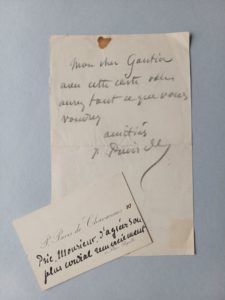 Mon cher Gautier
avec cette carte vous
aurez tout ce que vous
voudrez
amitiés
P. Puvis de Ch
P. Puvis de Chavannes
Prie Monsieur, d'agréer son
plus cordial remerciement